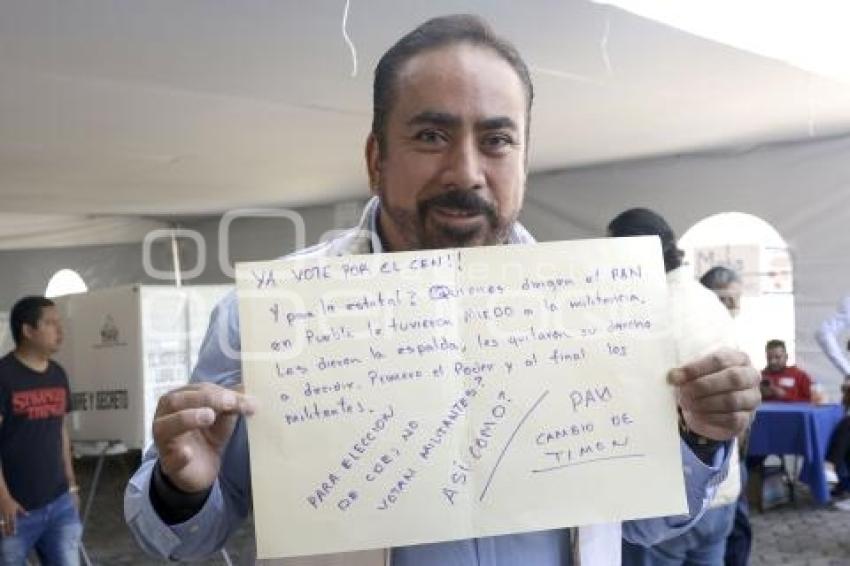 YA VOTE POR EL CEN!!
Y para la estatal? Quienes dirigen el PAN
en Puebla le tuvieron MIEDO a la militancia.
Les dieron la espalda, les quitaron su derecho
a decidir. Primero el Poder y al final los
militantes.
PARA ELECCION
DE CDE, NO
VOTAN MILITANTES?
ASÍ COMO?
PAN
CAMBIO DE
TIMON
BRE Y SECRETO